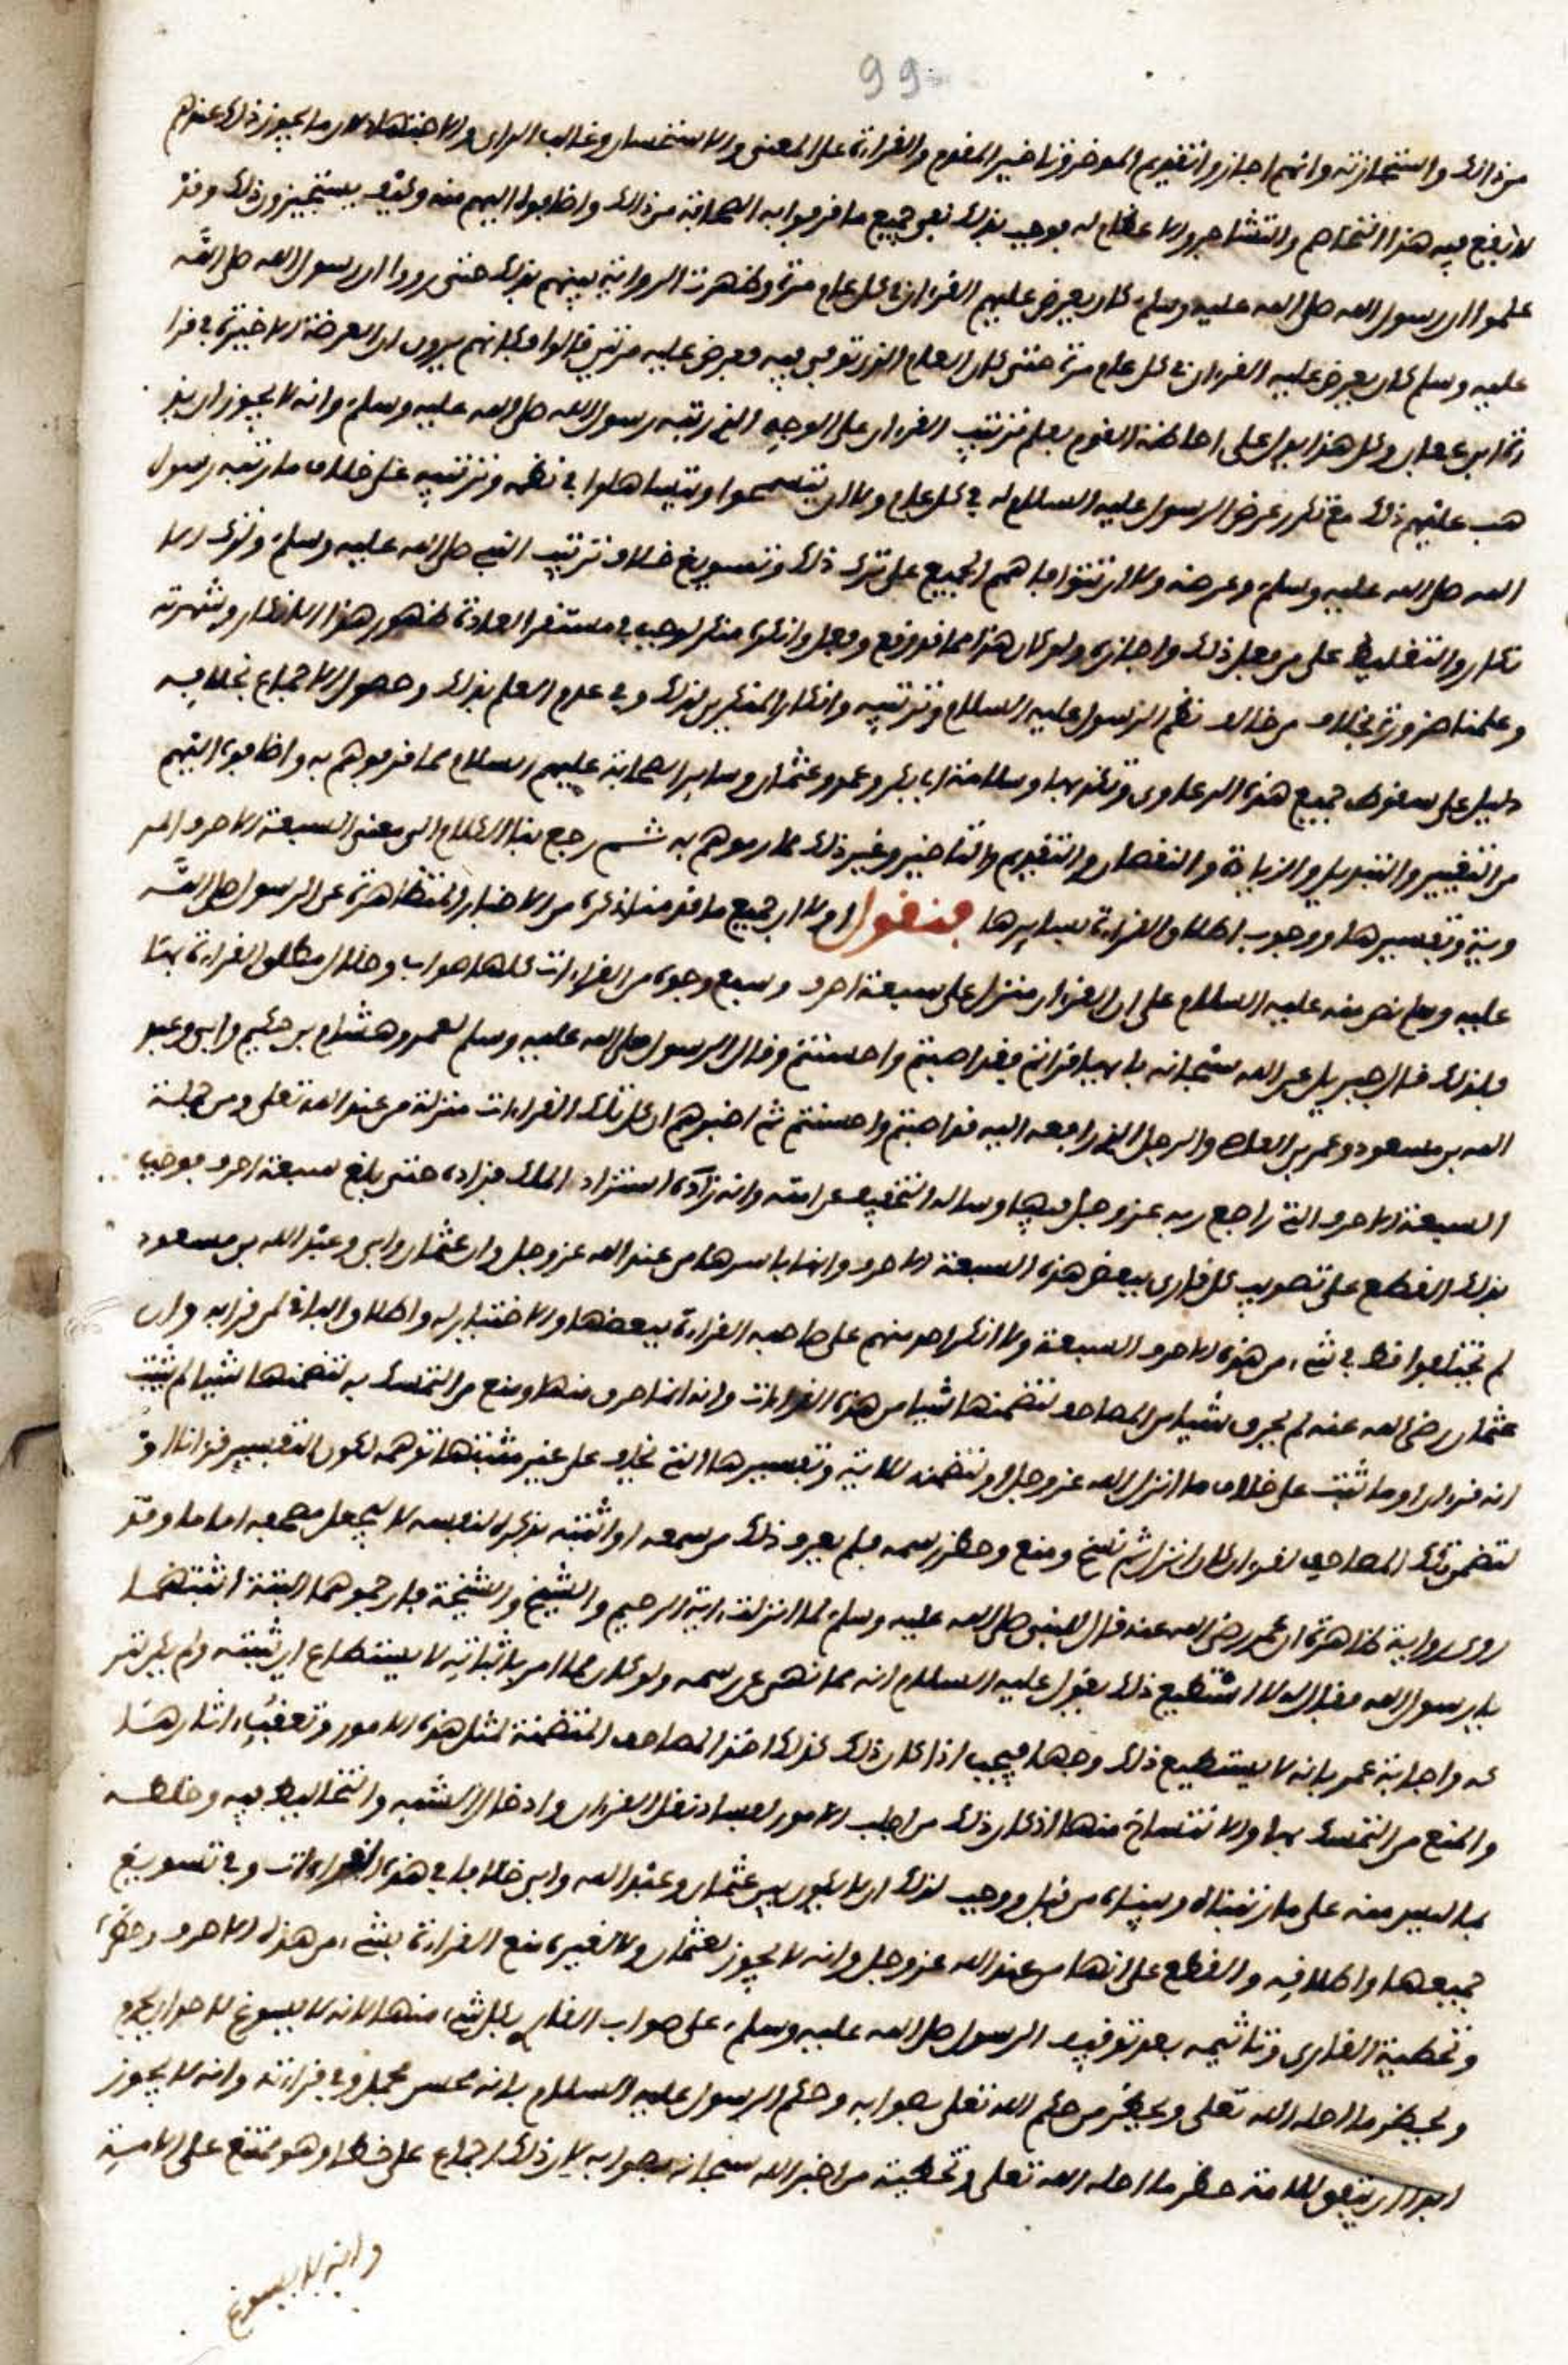 99
من ذلك واستجازته وانهم اجازوا تقديم الموخر وتاخير المقدم والقراءة على المعنى والاستحسان وغالب الراى والاجتهاد لان ما يجوز ذلك عندهم
لا يقع فيه هذا التخاصم والتشاجر والاعظام له فوجب بذلك نفى جميع ما قرفوا به الصحابة من ذلك واضافوا اليهم منه وكيف يستجيزون ذلك وقد
علموا ان رسول الله صلى الله عليه وسلم كان يعرض عليهم القرءان في كل عام مرة وظهرت الرواية بينهم بذلك حتى رووا ان رسول الله صلى الله
عليه وسلم كان يعرض عليه القرءان في كل عام مرة حتى كان العام الذى توفى فيه فعرض عليه مرتين قالوا فكانهم يرون ان العرضة الاخيرة في قرا
ءة ابن عفان وكل هذا يدل على احاطة القوم بعلم ترتيب القرءان على الوجه الذى رتبه رسول الله صلى الله عليه وسلم وانه لا يجوز ان يذ
هب عليهم ذلك مع تكرر عرض الرسول عليه السلام له في كل عام ولا ان يتسمحوا ويتساهلوا في نظمه وترتيبه على خلاف ما رتبه رسول
الله صلى الله عليه وسلم وعرضه ولا ان تتفق اهم الجميع على ترك ذلك وتسويغ خلاف ترتيب النبي صلى الله عليه وسلم وترك الا
نكار والتغليظ على من فعل ذلك واجازه ولو كان هذا مما قد وقع وفعل وانكره منكر لوجب في مستقر العادة ظهور هذا الانكار وشهرته
وعلمنا ضرورة بخلاف من خالف نظم الرسول عليه السلام وترتيبه وانكار المنكرين لذلك وفي عدم العلم بذلك وحصول الاجماع بخلافه
دليل على سقوط جميع هذه الدعاوى وتكذيبها وسلامة ابا بكر وعمر وعثمان وساير الصحابة عليهم السلام مما قرفوهم به واضافوه اليهم
من التغيير والتبديل والزيادة والنقصان والتقديم والتاخير وغير ذلك مما رموهم به ثم رجع بنا الكلام الى معنى السبعة الاحرف المر
وية وتفسيرها ووجوب اطلاق القراءة بسايرها فنقول اولا ان جميع ما قدمنا ذكره من الاخبار المتظاهرة عن الرسول صلى الله
عليه وسلم نص منه عليه السلام على ان القرءان منزل على سبعة احرف وسبع وجوه من القراءات كلها صواب وحلال مطلق القراءة بها
ولذلك قال جبريل عن الله سبحانه بايها قراتم فقد اصبتم واحسنتم وقال الرسول صلى الله عليه وسلم لعمر وهشام بن حكيم وابى وعبد
الله بن مسعود وعمرو بن العاص والرجل الذى رافعه اليه قد اصبتم واحسنتم ثم اخبرهم ان كل تلك القراءات منزلة من عند الله تعلى ومن جملة
السبعة الاحرف التي راجع ربه عز وجل فيها وساله التخفيف عن امته وانه زاده استزاد الملك فزاده حتى بلغ سبعة احرف فوجب
بذلك القطع على تصويب كل قارى ببعض هذه السبعة الاحرف وانها باسرها من عند الله عز وجل وان عثمان وابى وعبد الله بن مسعود
لم يختلفوا قط في شىء من هذه الاحرف السبعة ولا انكر احد منهم على صاحبه القراءة ببعضها والاختيار له واطلاق الباقي لمن قرا به وان
عثمان رضى الله عنه لم يحرق شيئا من المصاحف لتضمنها شيئا من هذه القراءات وانه انما احرق منها ومنع من التمسك به لتضمنها شيئا لم يثبت
انه قرءان او ما ثبت على خلاف ما انزل الله عز وجل او لتضمنه الاية وتفسيرها التي يخاف على غير مثبتها توهمه لكون التفسير قرءانا او
لتضمن تلك المصاحف لقرءان كان انزل ثم نسخ ومنع وحظر رسمه فلم يعرف ذلك من سمعه او اثبته تذكرة لنفسه لا ليجعل مصحفه اماما وقد
روى رواية ظاهرة ان عمر رضى الله عنه قال للنبى صلى الله عليه وسلم لما انزلت اية الرجم والشيخ والشيخة فارجموهما البتة اثبتهما
يا رسول الله فقال له لا استطيع ذلك يقول عليه السلام انه مما نهى عن رسمه ولو كان مما امر باثباته لا يستطاع ان يثبته ولم يكن لتر
كه واجابة عمر بانه لا يستطيع ذلك وجها فيجب اذا كان ذلك كذلك اخذ المصاحف المتضمنة لمثل هذه الامور وتعفية اثارها
والمنع من التمسك بها والانتساخ منها اذ كان ذلك من اجلب الامور لفساد نقل القرءان وادخال الشبه والتخاليط فيه وخلطه
بما ليس منه على ما رتبناه وبيناه من قبل ووجب لذلك ان لا يكون بين عثمان وعبد الله وابى خلافا في هذه القراءات وفي تسويغ
جميعها واطلاقه والقطع على انها من عند الله عز وجل وانه لا يجوز لعثمان ولا لغيره منع القراءة بشىء من هذه الاحرف وحظره
وتخطية القارى وتاثيمه بعد توقيف الرسول صلى الله عليه وسلم على صواب القارى بكل شىء منها لانه لا يسوغ لاحد ان يحرم
ويحظر ما احله الله تعلى ويخطر من حكم الله تعلى بصوابه وحكم الرسول عليه السلام بانه محسن مجمل وفي قراءته وانه لا يجوز
ابدا ان يتفق للامة حظر ما احله الله تعلى وتخطية من اخبر الله سبحانه بصوابه لان ذلك اجماع على خطا وهو ممتنع على الامة
وانه لا يسوغ